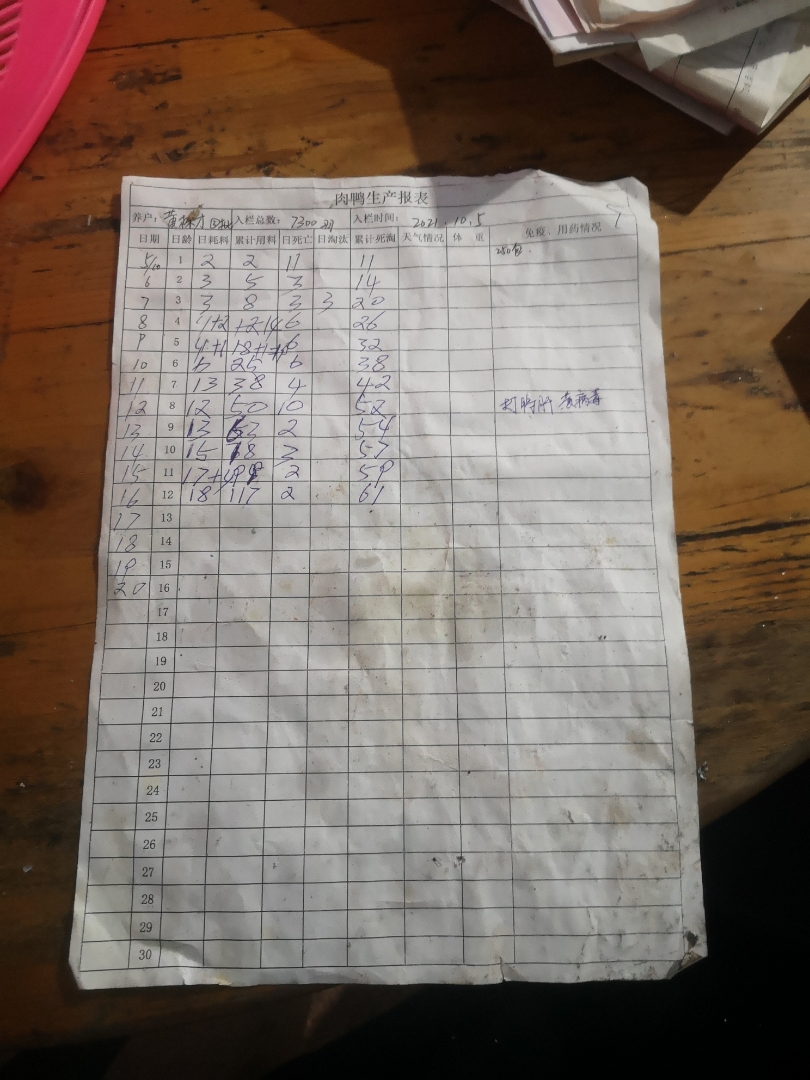 肉鸭生产报表
养户： 黄 入栏总数： 7300 入栏时间： 2021.10.5
日期 日龄 日耗料 累计用料 日死亡 日淘汰 累计死淘 天气情况 体 重 免疫、用药情况
5/10 1 2 2 11 11 250包.
6 2 3 5 3 14
7 3 3 8 3 3 20
8 4 6 26
9 5 6 32
10 6 6 25 6 38
11 7 13 38 4 42
12 8 12 50 10 52 打鸭肝 病毒
13 9 13 63 2 54
14 10 15 78 3 57
15 11 2 59
16 12 18 117 2 61
17 13
18 14
19 15
20 16
17
18
19
20
21
22
23
24
25
26
27
28
29
30